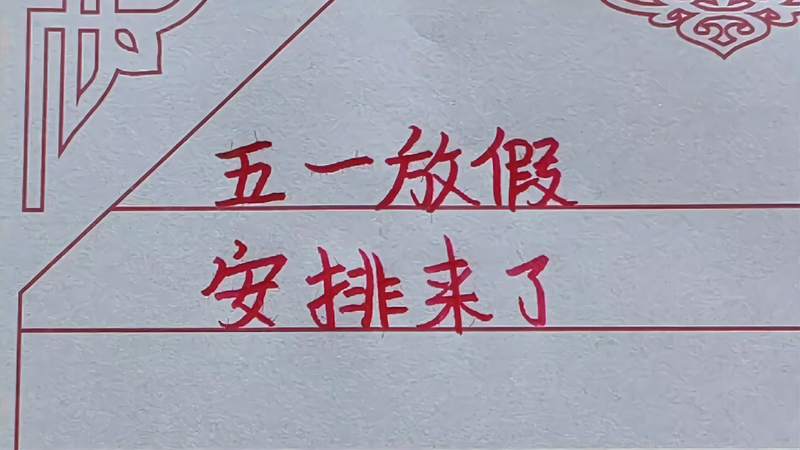 五一放假
安排来了